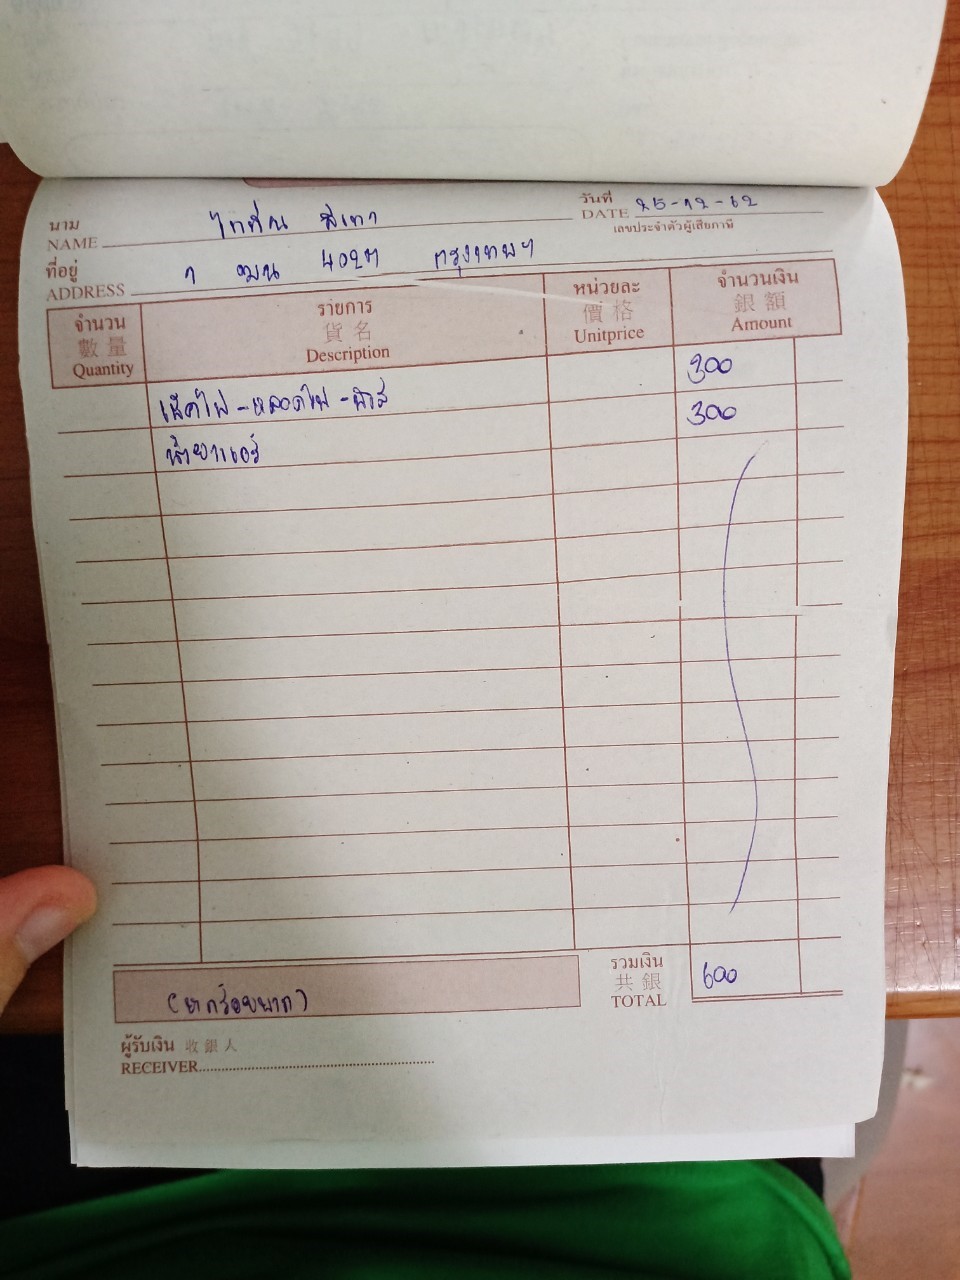 นาม ไทที่ณ สีเทา วันที่
NAME DATE 25-12-62
เลขประจำตัวผู้เสียภาษี
ที่อยู่
ADDRESS 1 ฒน 4027 กรุงเทพฯ
จำนวน รายการ หน่วยละ จำนวนเงิน
數量 貨名 價格 銀額
Quantity Description Unitprice Amount
เช็คไฟ-หลอดไฟ-ฟิวส์ 300
น้ำยาแอร์ 300
รวมเงิน
共銀
TOTAL 600
(หกร้อยบาท)
ผู้รับเงิน 收銀人
RECEIVER